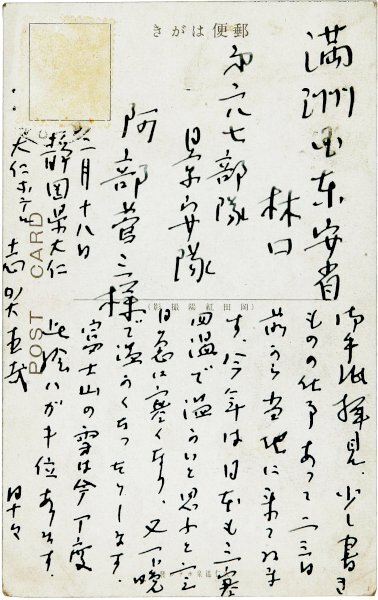 郵便はがき
満洲国東安省
林口
第六七部隊
阿部菅三様
二月十八日
静岡県大仁
大仁ホテル 志賀直哉
POST CARD
(岡田紅陽撮影)
御手紙拝見、少し書き
ものの仕事あつて二三日
前から当地に来てゐま
す、今年は日本も三寒
四温で温いと思ふと二三
日急に寒くなり、又一晩
で温くなつたりします。
富士山の雪は今丁度
此絵ハガキ位あります。